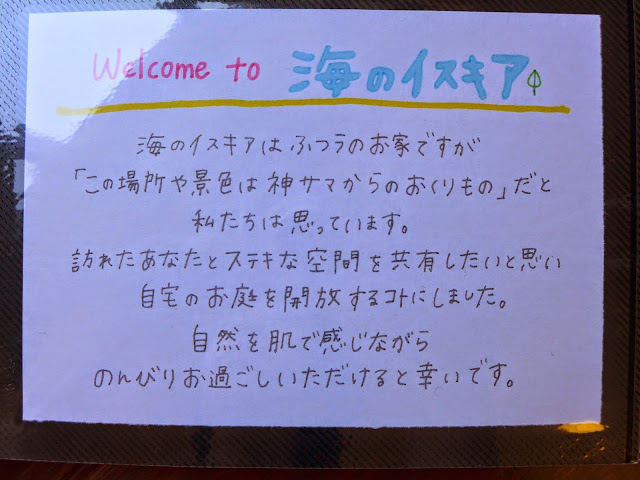 Welcome to 海のイスキア
海のイスキアはふつうのお家ですが
「この場所や景色は神サマからのおくりもの」だと
私たちは思っています。
訪れたあなたとステキな空間を共有したいと思い
自宅のお庭を開放するコトにしました。
自然を肌で感じながら
のんびりお過ごしいただけると幸いです。